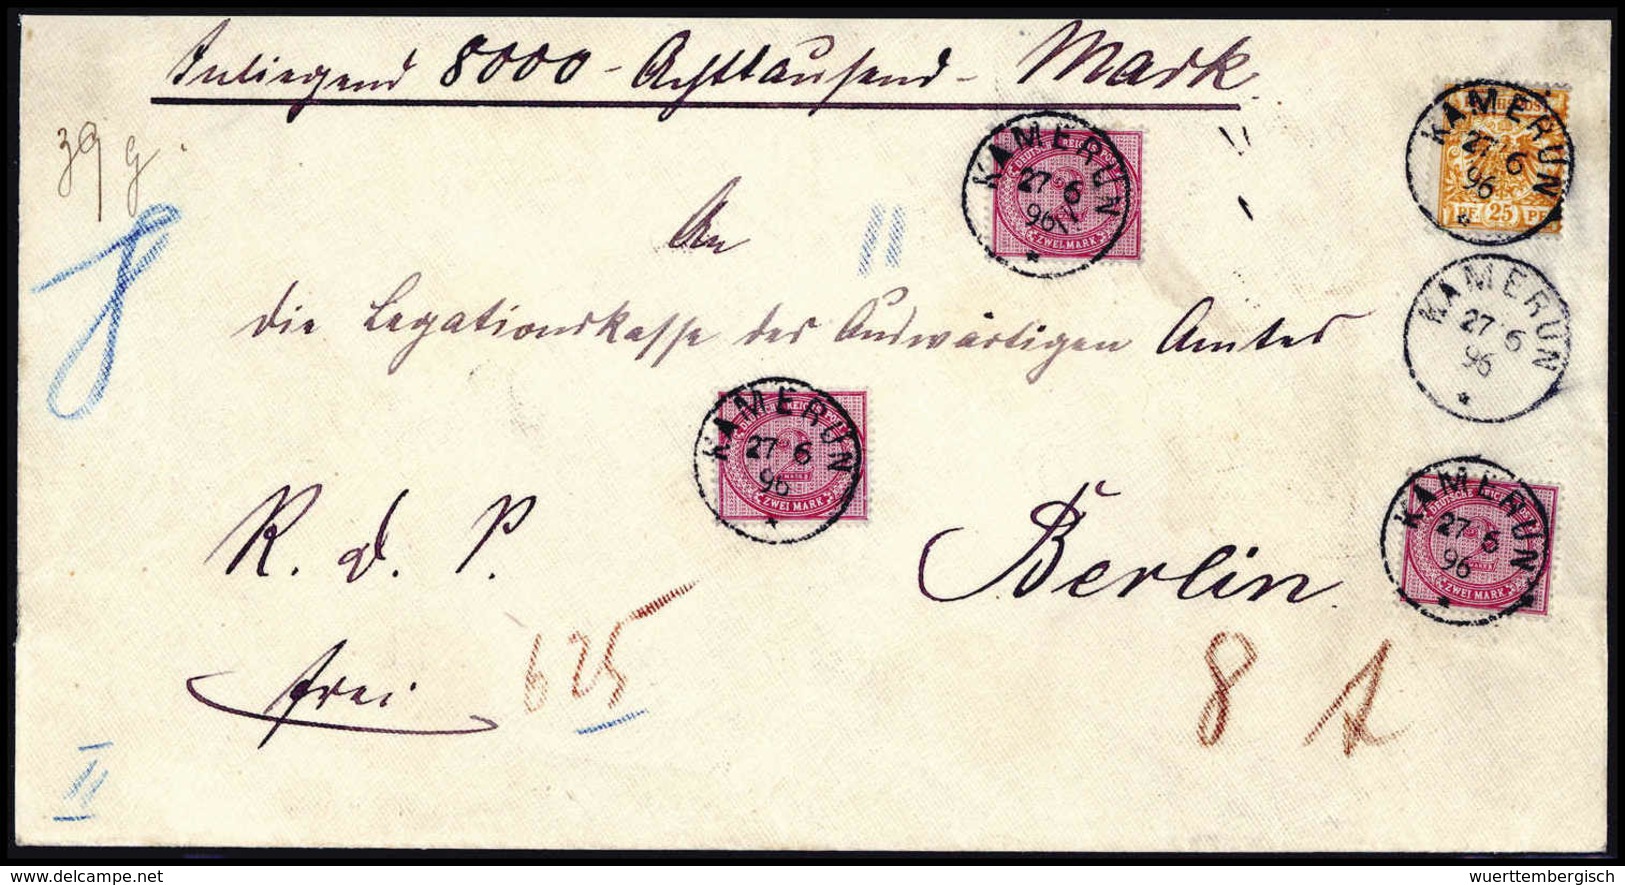 Inliegend 8000 - Achttausend - Mark
39 g.
An
die Legationskasse des Auswärtigen Amtes
R. d. P.
Berlin
frei
625
8
II
KAMERUN
27 6
96
*
DEUTSCHE REICHS-POST
ZWEI MARK
KAMERUN
27 6
96
*
PF. 25 PF.
KAMERUN
27 6
96
*
KAMERUN
27 6
96
*
2
ZWEI MARK
KAMERUN
27 6
96
*
2
ZWEI MARK
© delcampe.net
wuerttembergisch